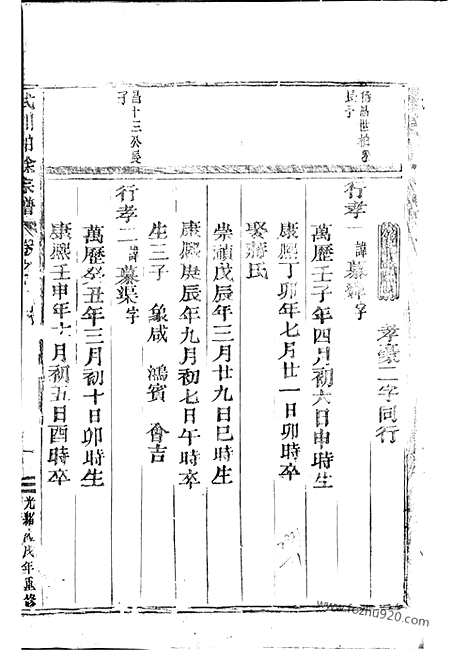 孝豪二字同行
行孝一諱慕字
萬歷壬子年四月初六日申時生
康熙丁卯年七月廿一日卯時卒
娶蔣氏
崇禎戊辰年三月廿九日巳時生
康熙庚辰年九月初七日午時卒
生三子 象咸 鴻賓 會吉
行孝二諱慕渠字
萬歷癸丑年三月初十日卯時生
康熙壬申年六月初五日酉時卒
昌十三公長子
徐宗譜 卷之
光緒戊戌年重修
www.fozhu920.com